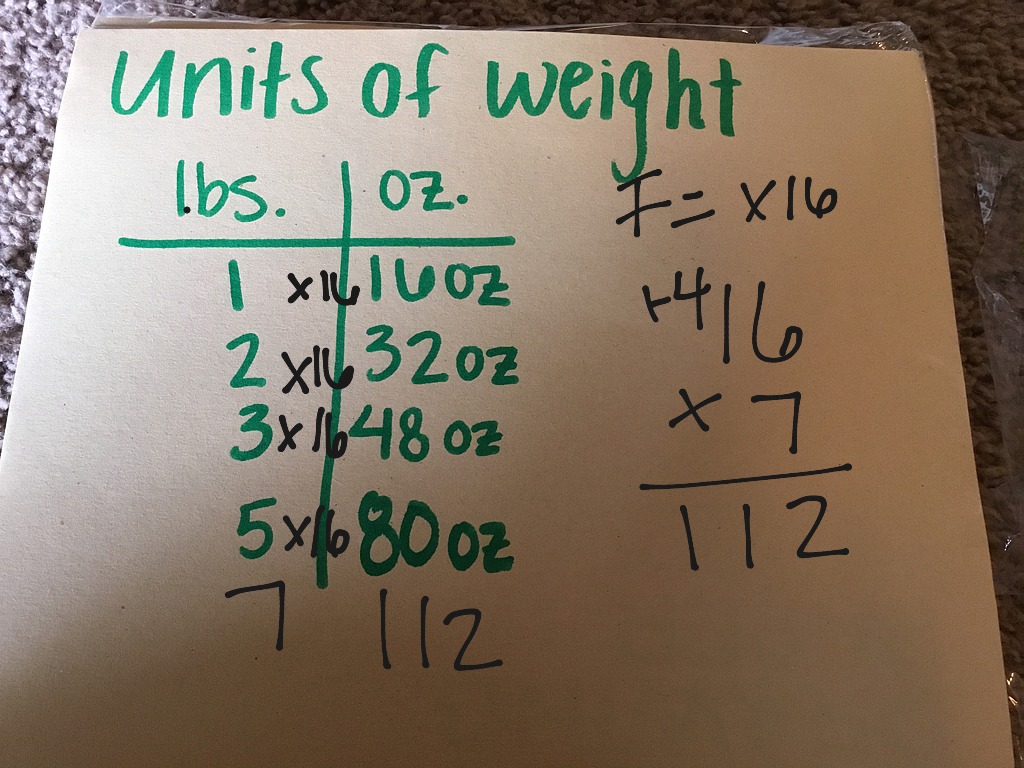 units of weight
lbs. oz.
1 x16 16 oz
2 x16 32 oz
3 x16 48 oz
5 x16 80 oz
7 112
F= x16
+4 16
x 7
112